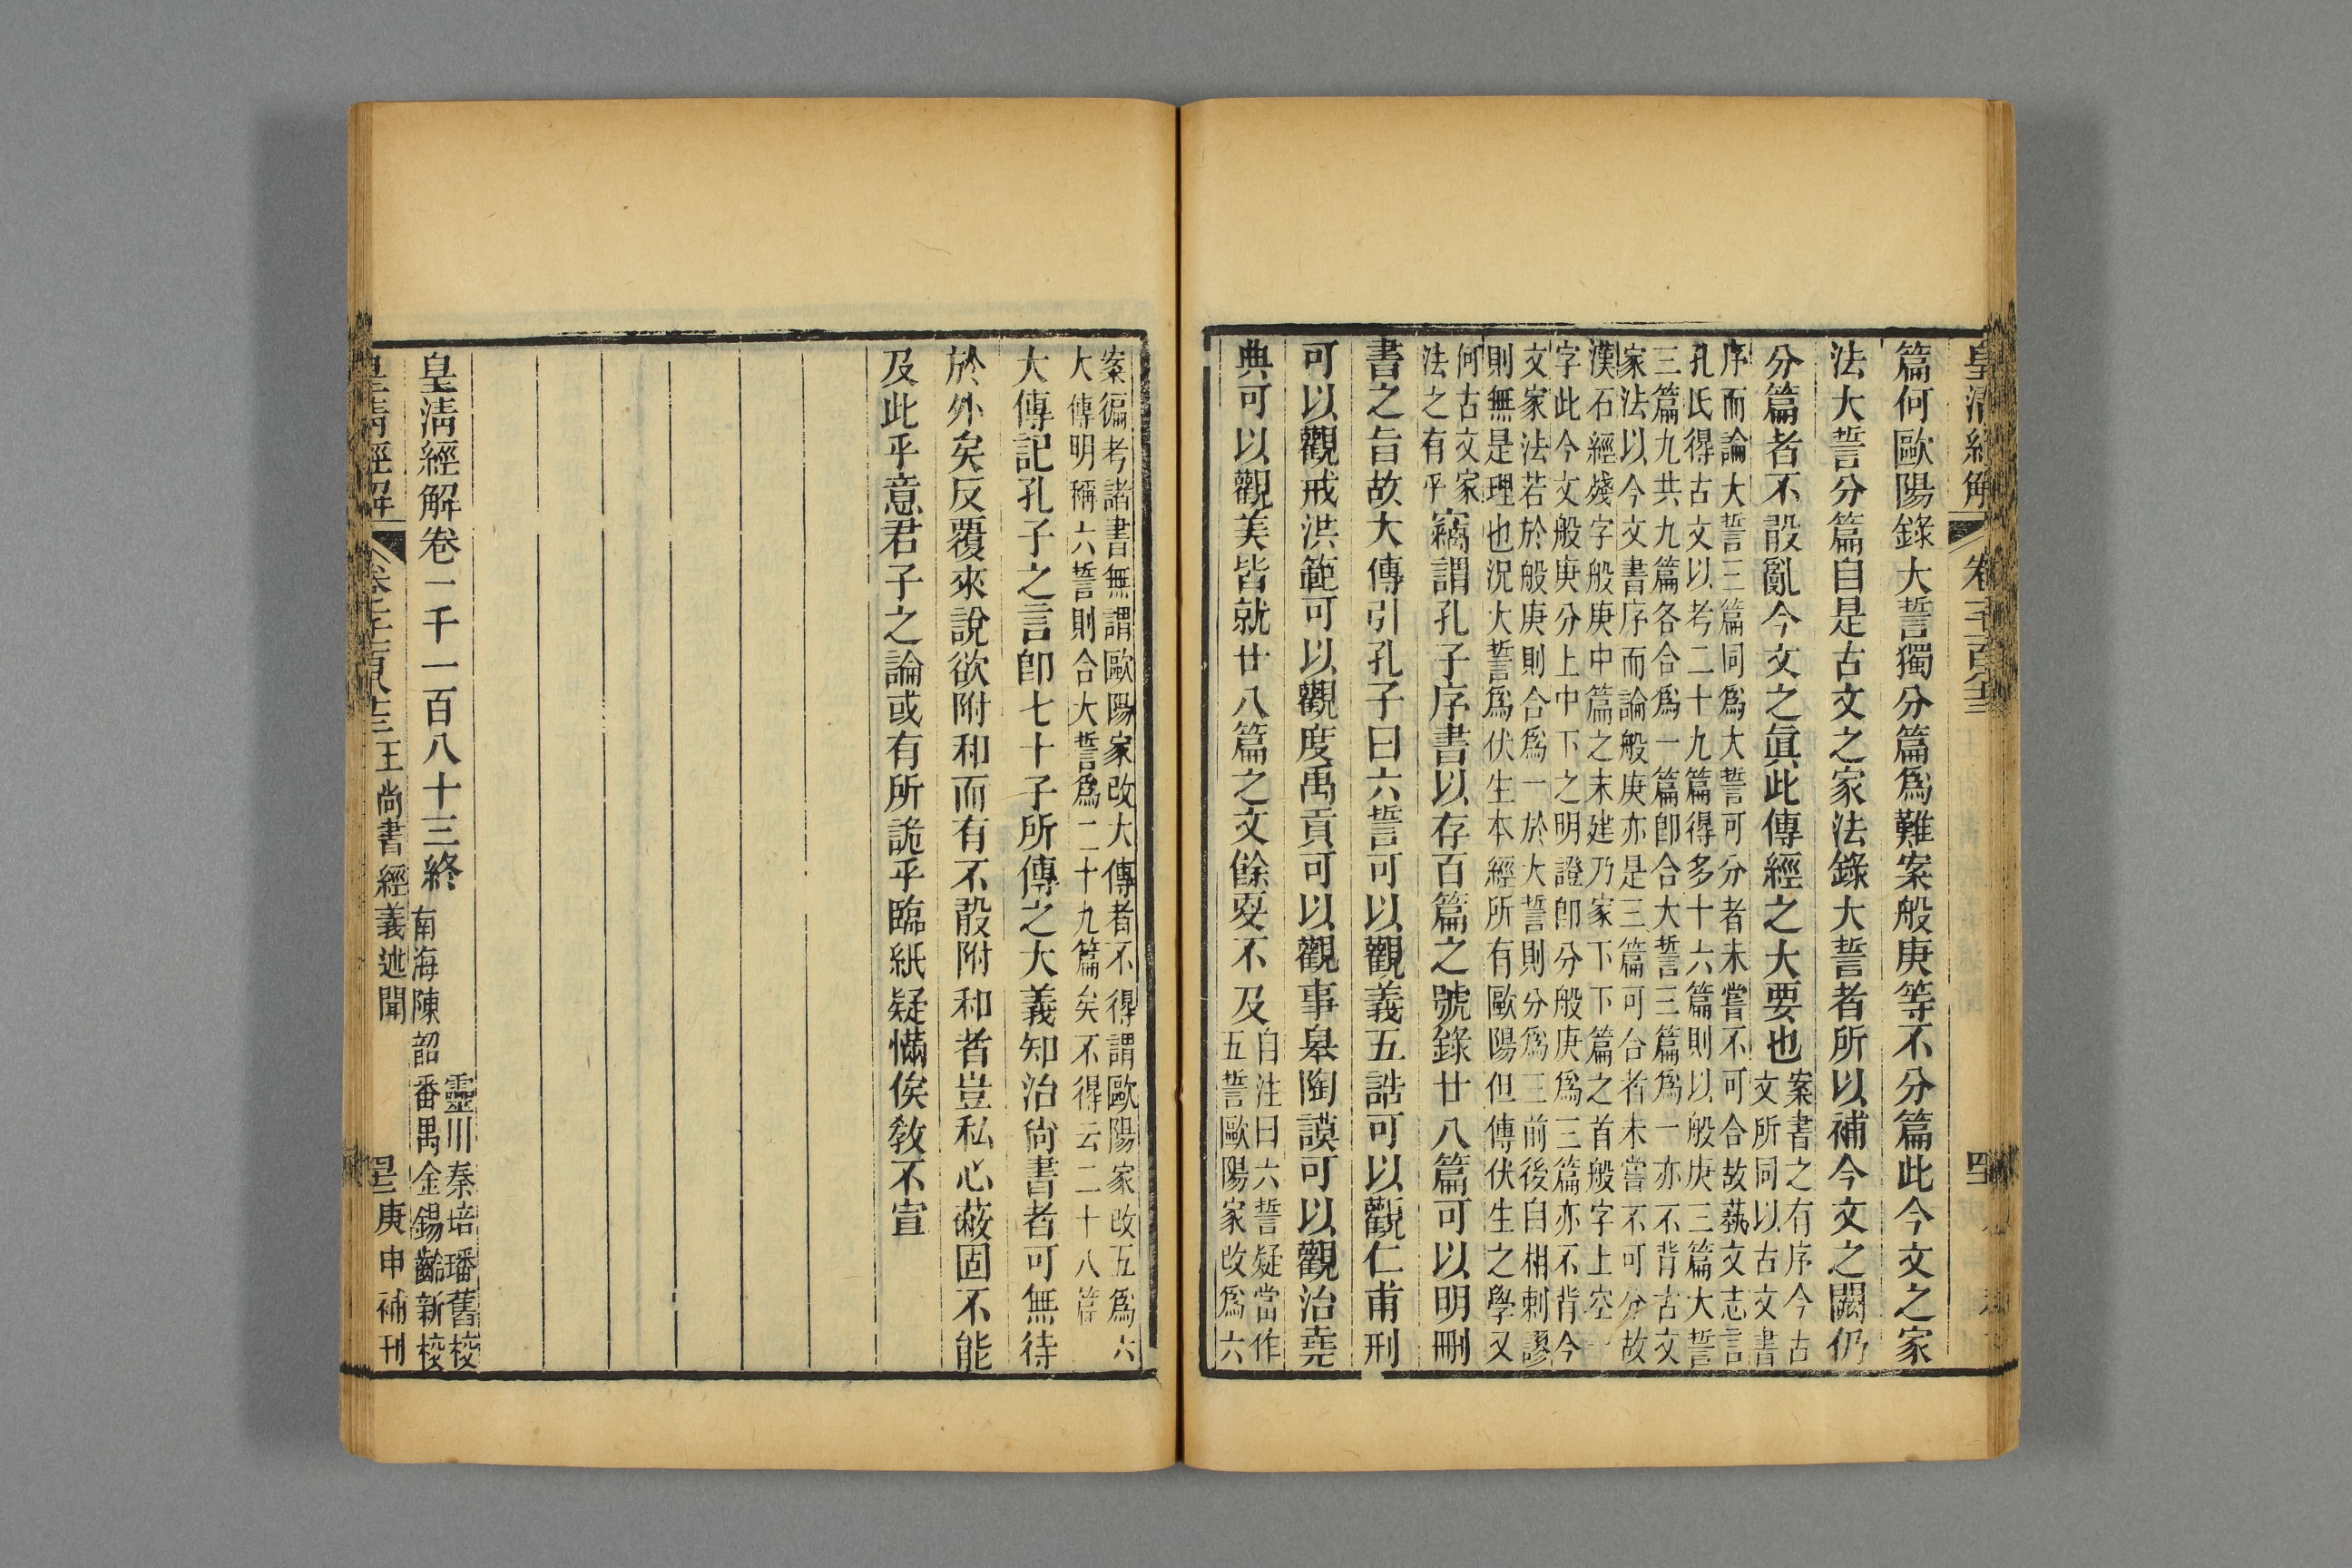 篇何歐陽錄大誓獨分篇爲難案般庚等不分篇此今文之家
法大誓分篇自是古文之家法錄大誓者所以補今文之闕仍
分篇者不殽亂今文之眞此傳經之大要也
案書之有序今古
文所同以古文書
序而論大誓三篇同爲大誓可分者未嘗不可合故蓺文志言
孔氏得古文以考二十九篇得多十六篇則以般庚三篇大誓
三篇九共九篇各合爲一篇卽合大誓三篇爲一亦不背古文
家法以今文書序而論般庚亦是三篇可合者未嘗不可分故
漢石經殘字般庚中篇之末建乃家下下篇之首般字上空一
字此今文般庚分上中下之明證卽分般庚爲三篇亦不背今
文家法若於般庚則合爲一於大誓則分爲三前後自相刺謬
則無是理也況大誓爲伏生本經所有歐陽但傳伏生之學又
何古文家
法之有乎
竊謂孔子序書以存百篇之號錄廿八篇可以明刪
書之旨故大傳引孔子曰六誓可以觀義五誥可以觀仁甫刑
可以觀戒洪範可以觀度禹貢可以觀事皋陶謨可以觀治堯
典可以觀美皆就廿八篇之文餘㪅不及
自注曰六誓疑當作
五誓歐陽家改爲六
案徧考諸書無謂歐陽家改大傳者不得謂歐陽家改五爲六
大傳明稱六誓則合大誓爲二十九篇矣不得云二十八篇
大傳記孔子之言卽七十子所傳之大義知治尙書者可無待
於外矣反覆來說欲附和而有不殽附和者豈私心蔽固不能
及此乎意君子之論或有所詭乎臨紙疑懣俟敎不宣
皇淸經解卷一千一百八十三終
南海陳韶
靈川秦培璠舊校
番禺金錫齡新校
皇淸經解
王尙書經義述聞
庚申補刊